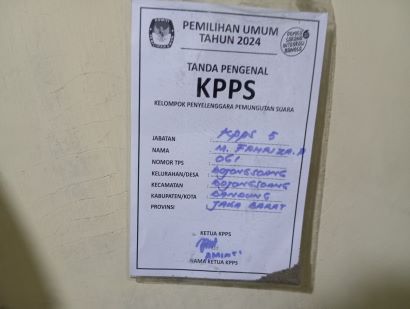 PEMILIHAN UMUM
TAHUN 2024
TANDA PENGENAL
KPPS
KELOMPOK PENYELENGGARA PEMUNGUTAN SUARA
JABATAN : KPPS 5
NAMA : M. FAHRIZA.A
NOMOR TPS : 061
KELURAHAN/DESA : BOJONGSOANG
KECAMATAN : BOJONGSOANG
KABUPATEN/KOTA : BANDUNG
PROVINSI : JAWA BARAT
KETUA KPPS
NAMA KETUA KPPS